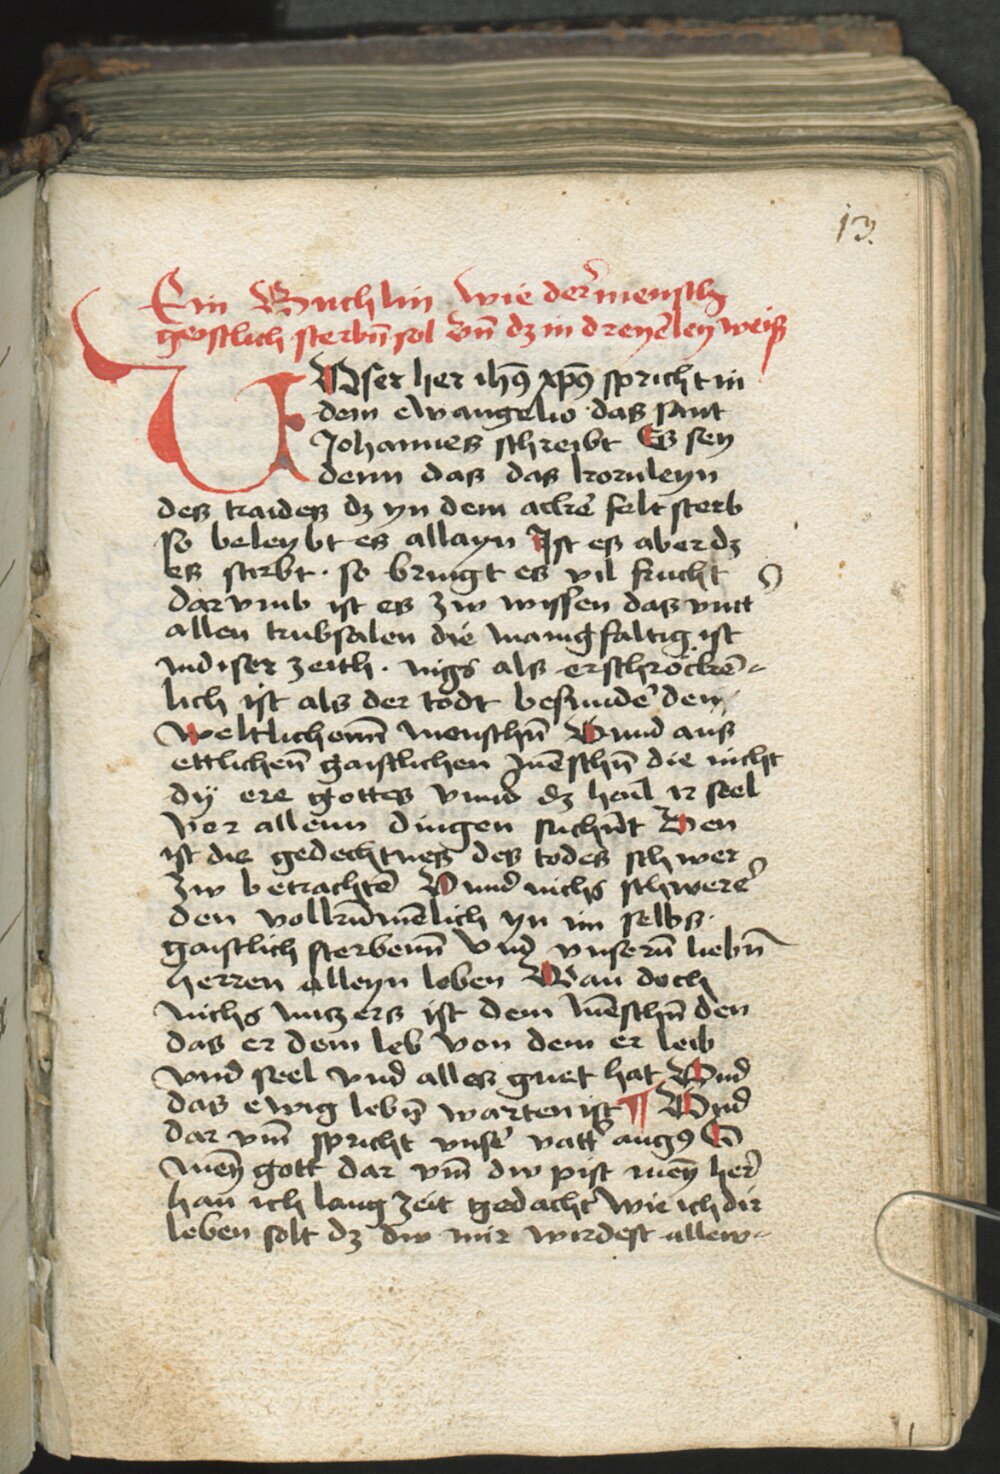 13.
Ein Buchlin wie der mensch
geystlich sterbn̄ sol vn̄ dz in dreyerley weiß
VNser her ihūs xpūs spricht in
dem ewangelio das sant
Johannes schreibt Es sey
denn das das kornleyn
des traides dz yn dem acker̄ felt sterb
so beleybt es allayn Ist es aber dz
es stirbt · so bringt es vil frucht
dar vmb ist es zw wissen das vntt̄
allen trubsalen die manigfaltig ist
in diser zeith · nigs als erschrocken̄=
lich ist als der todt besunder̄ den
weltlichenn̄ menschn̄ Vnnd aus
ettlichen̄ gaistlichen mēschn̄ die nicht
dÿ ere gottes vnnd dz hail ir seel
vor allenn dingen suchn̄t Den
ist die gedechtnes des todes schwer
zw betrachtē Vnnd nichs schwerē
den volkūmēlich yn im selbs
gaistlich sterbenn̄ Vnd vnserū liebn̄
herren alleyn leben Wan doch
nichs nuczers ist dem mēschn̄ den
das er dem leb von dem er leib
vnd seel vnd alles guet hat Vnd
das ewig lebn̄ warten ist ¶ Vnd
dar vm̄ spricht vnser̄ vatt̄ augꝰ O
meȳ gott dar vm̄ dw pist meȳ her
han̄ ich lang zeit gedacht wie ich dir
leben solt dz dw mir wirdest allew=
1